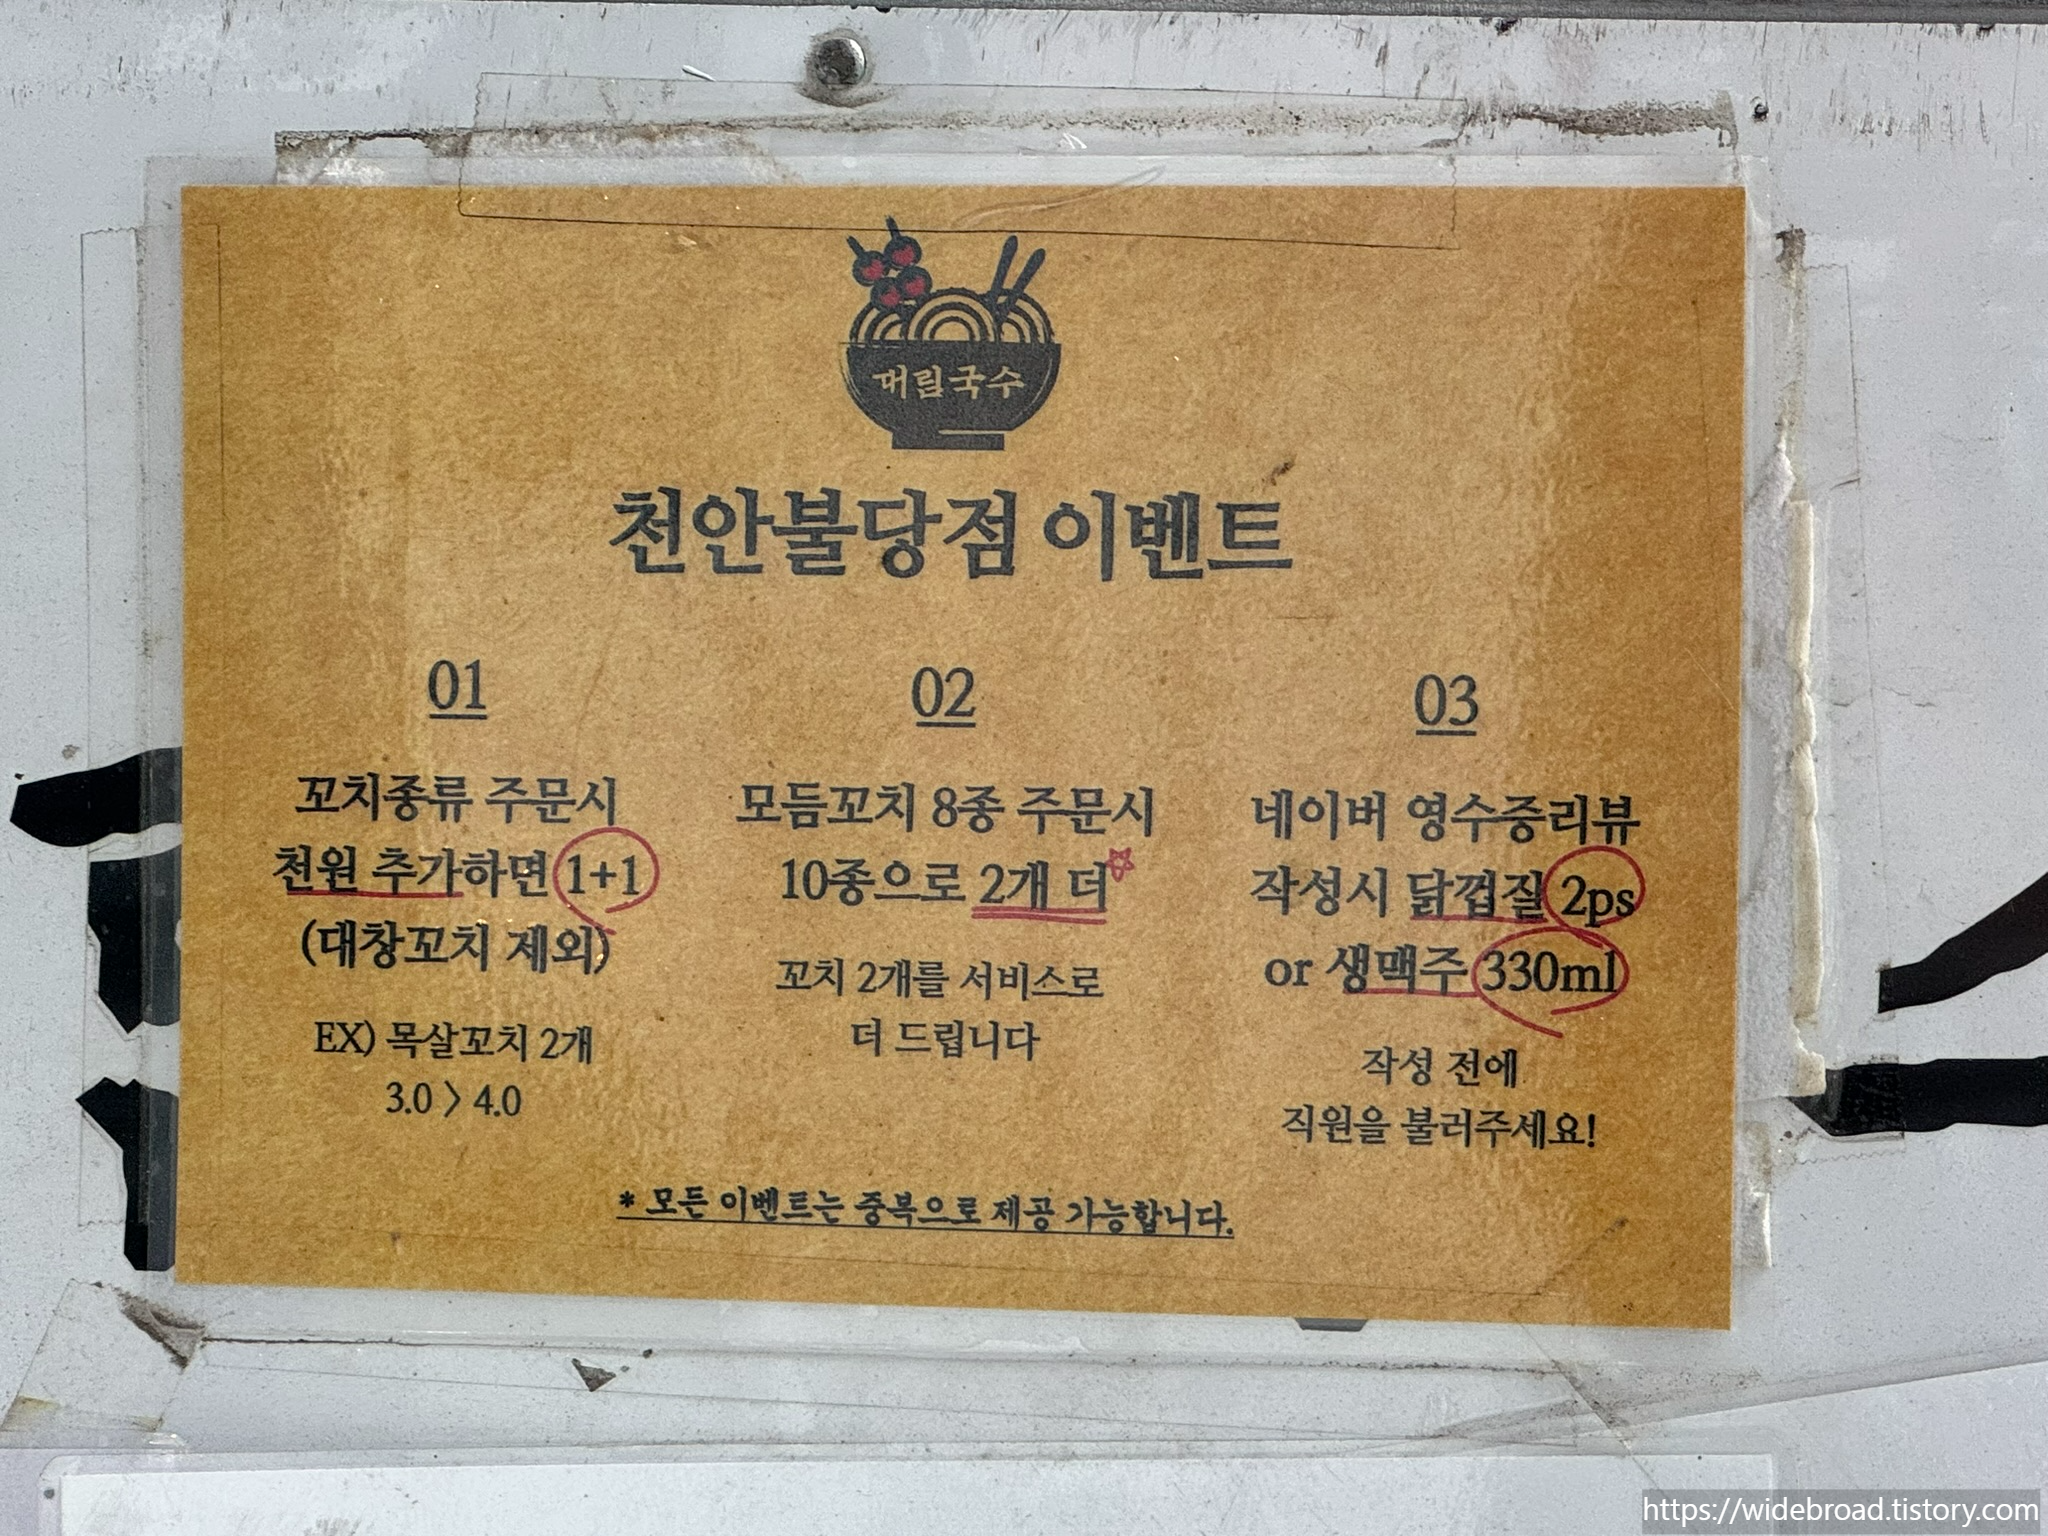 대림국수
천안불당점 이벤트
01
꼬치종류 주문시
천원 추가하면 1+1
(대창꼬치 제외)
EX) 목살꼬치 2개
3.0 > 4.0
02
모듬꼬치 8종 주문시
10종으로 2개 더
꼬치 2개를 서비스로
더 드립니다
03
네이버 영수증리뷰
작성시 닭껍질 2ps
or 생맥주 330ml
작성 전에
직원을 불러주세요!
* 모든 이벤트는 중복으로 제공 가능합니다.
https://widebroad.tistory.com